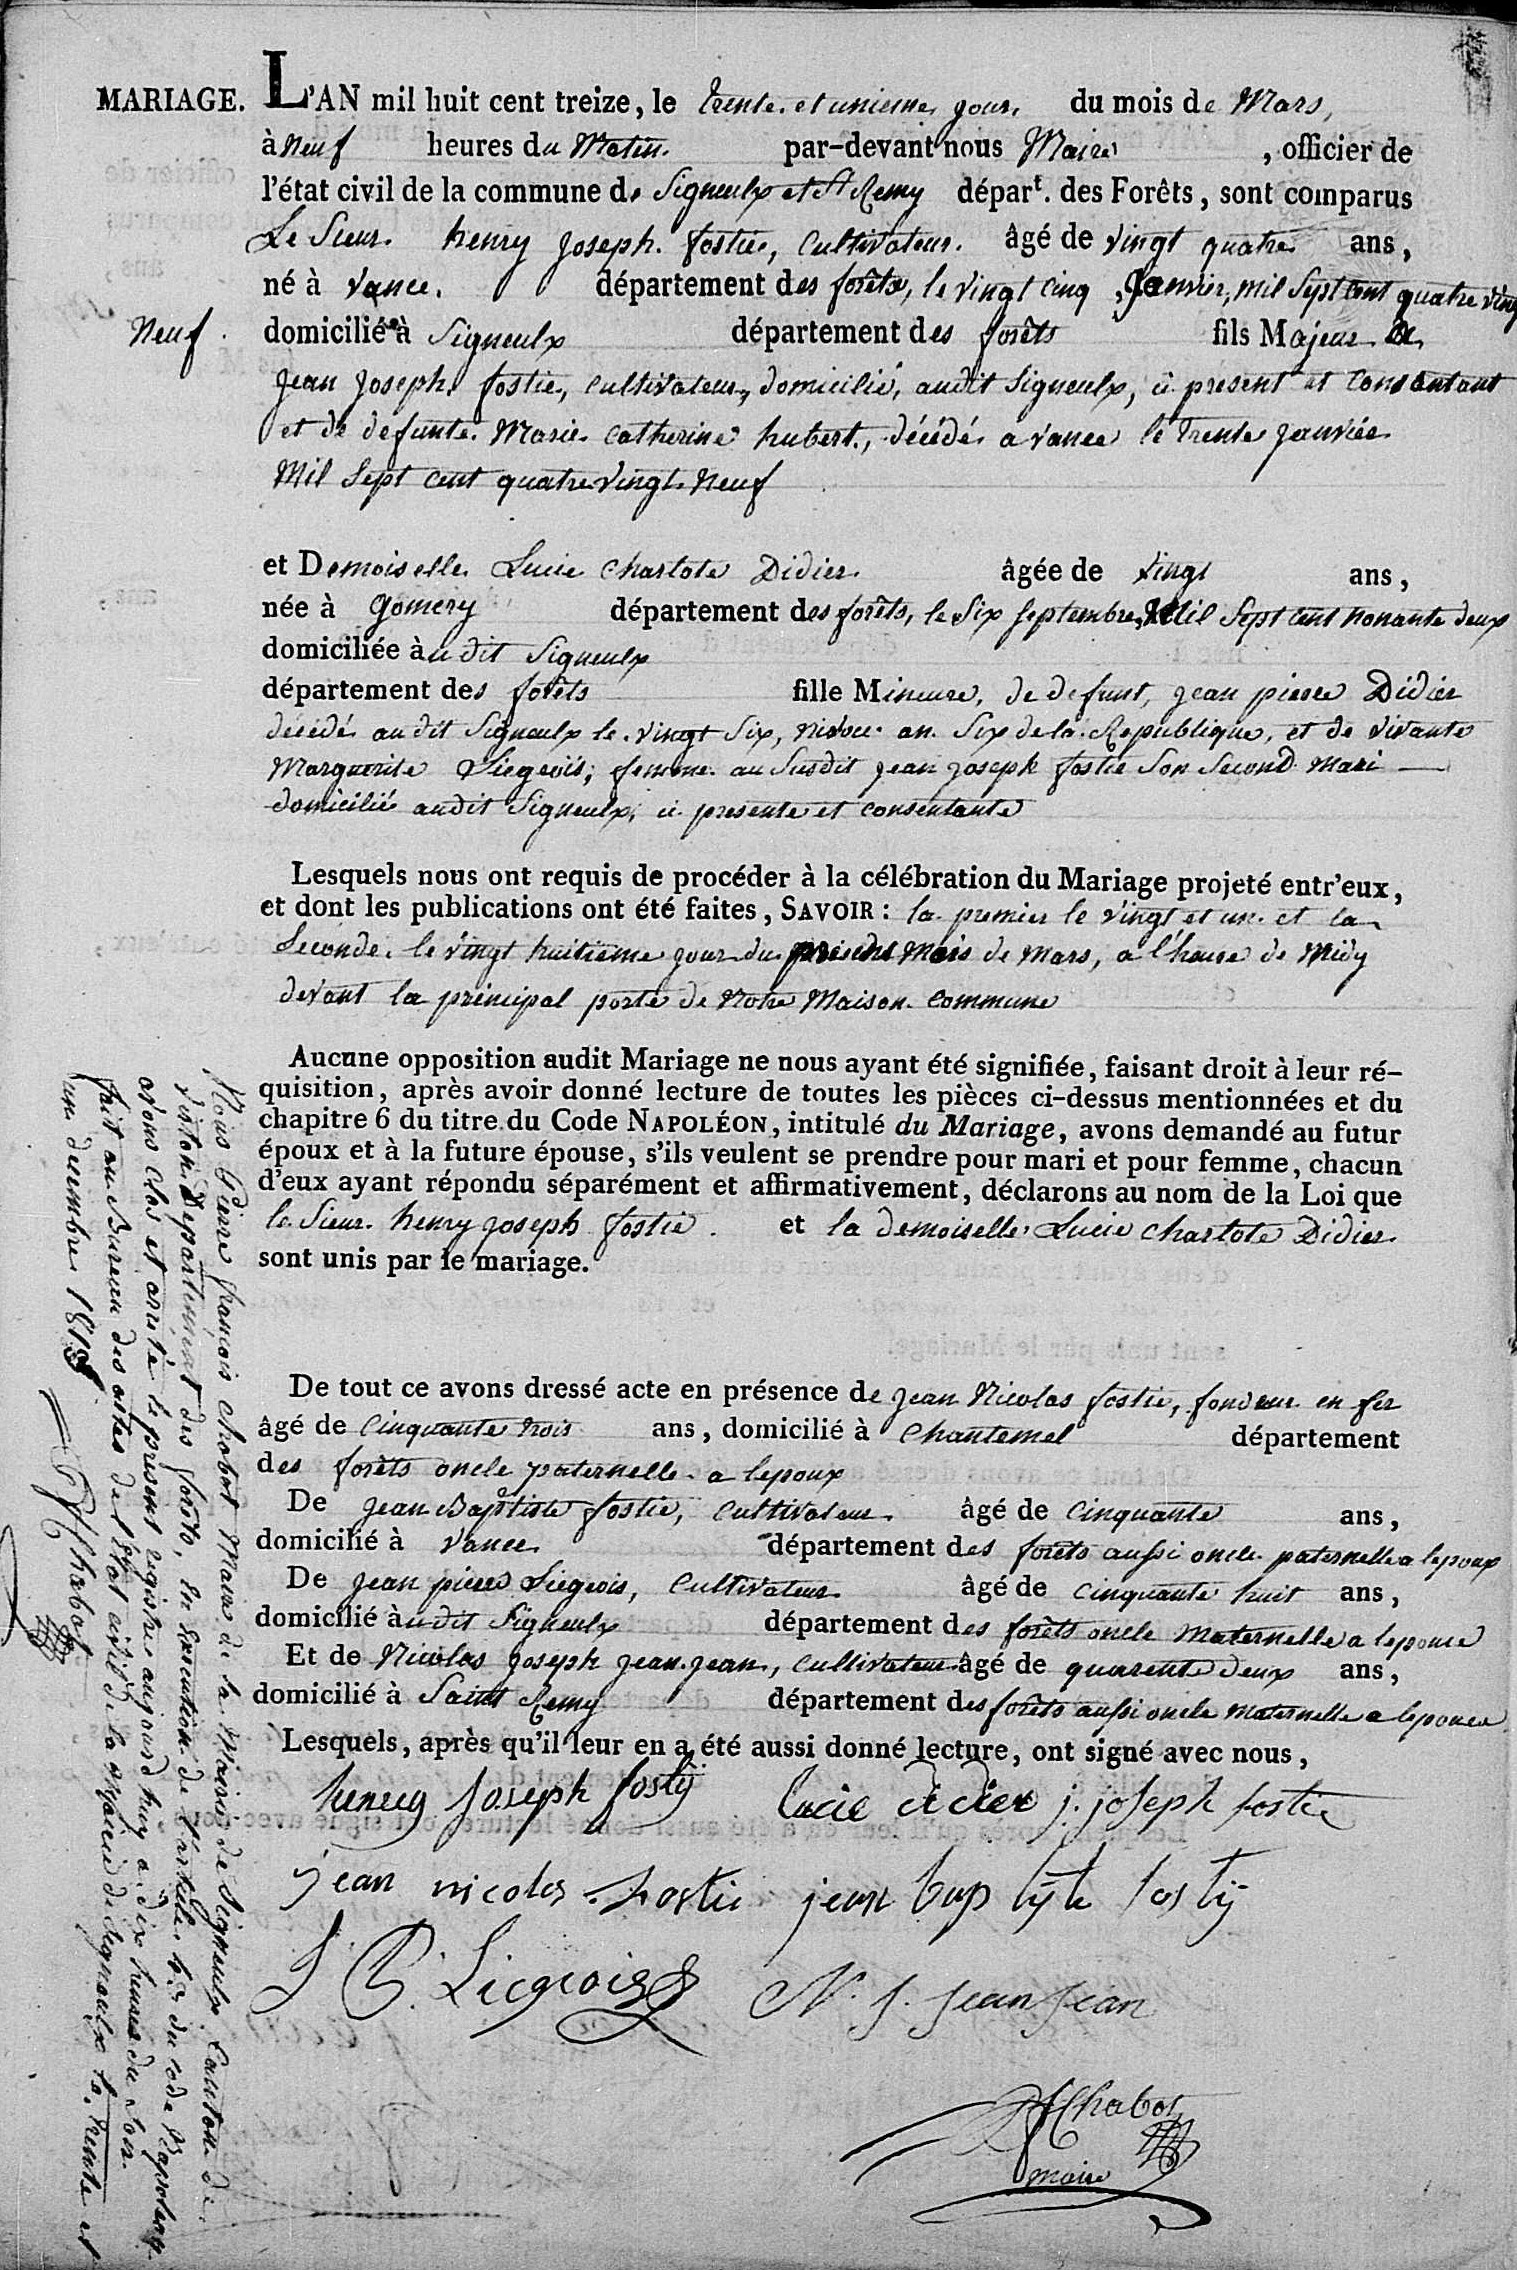 MARIAGE. L'AN mil huit cent treize, le trente et unieme jour du mois de Mars,
à neuf heures du Matin par-devant nous Maire, officier de
l'état civil de la commune de Signeulx et St Remy départ. des Forêts, sont comparus
Le Sieur henry Joseph fostie, Cultivateur âgé de vingt quatre ans,
né à vance, département des forêts, le vingt cinq Janvier, mil Sept cent quatre vingt
Neuf domicilié à Signeulx département des forêts fils Majeur de
Jean Joseph fostie, cultivateur, domicilié audit Signeulx, ci present et consentant
et de defunte Marie Catherine hubert, décédé a vance le trente janvier
Mil Sept cent quatre vingt Neuf
et Demoiselle Lucie Charlote Didier âgée de vingt ans,
née à Gomery département des forêts, le Six Septembre, Mil Sept cent nonante deux
domiciliée audit Signeulx
département des forêts fille Mineure, de defunt, jean pierre Didier
décédé audit Signeulx le vingt Six, nivose an Six de la Republique, et de vivante
Marguerite Liegeois, femme au Susdit jean joseph fostie Son Second mari
domicilié audit Signeulx, ci presente et consentante
Lesquels nous ont requis de procéder à la célébration du Mariage projeté entr'eux,
et dont les publications ont été faites, SAVOIR : la premier le vingt et un et la
Seconde le vingt huitieme jour du present mois de mars, a l'heure de Midy
devant la principal porte de Notre Maison commune
Aucune opposition audit Mariage ne nous ayant été signifiée, faisant droit à leur ré-
quisition, après avoir donné lecture de toutes les pièces ci-dessus mentionnées et du
chapitre 6 du titre du Code NAPOLÉON, intitulé du Mariage, avons demandé au futur
époux et à la future épouse, s'ils veulent se prendre pour mari et pour femme, chacun
d'eux ayant répondu séparément et affirmativement, déclarons au nom de la Loi que
le Sieur henry joseph fostie et la demoiselle Lucie Charlote Didier
sont unis par le mariage.
De tout ce avons dressé acte en présence de jean Nicolas fostie, fondeur en fer
âgé de Cinquante trois ans, domicilié à Chantemel département
des forêts oncle paternelle a lepoux
De jean Baptiste fostie, cultivateur âgé de cinquante ans,
domicilié à vance département des forêts aussi oncle paternelle a lepoux
De jean pierre Liegeois, Cultivateur âgé de cinquante huit ans,
domicilié audit Signeulx département des forêts oncle maternelle a lepouce
Et de Nicolas joseph jean jean, cultivateur âgé de quarente deux ans,
domicilié à Saint Remy département des forêts aussi oncle maternelle a lepouce
Lesquels, après qu'il leur en a été aussi donné lecture, ont signé avec nous,
henry Joseph fostÿ Lucie didier j. joseph fostie
jean nicolas fostie jean baptÿte fostÿ
J P. Liegeois N. J. Jean Jean
PfChabot
maire
Nous Pierre françois Chabot Maire de la Mairie de Signeulx Canton de
virton Departement des forêts, en execution de l'article 43 du code Napoleon
avons clos et arrêté le present registre aujourd'huy a dix heures du Soir.
fait au Bureau des actes de l'état civil de la Mairie de Signeulx le trente et
un decembre 1813
PfChabot